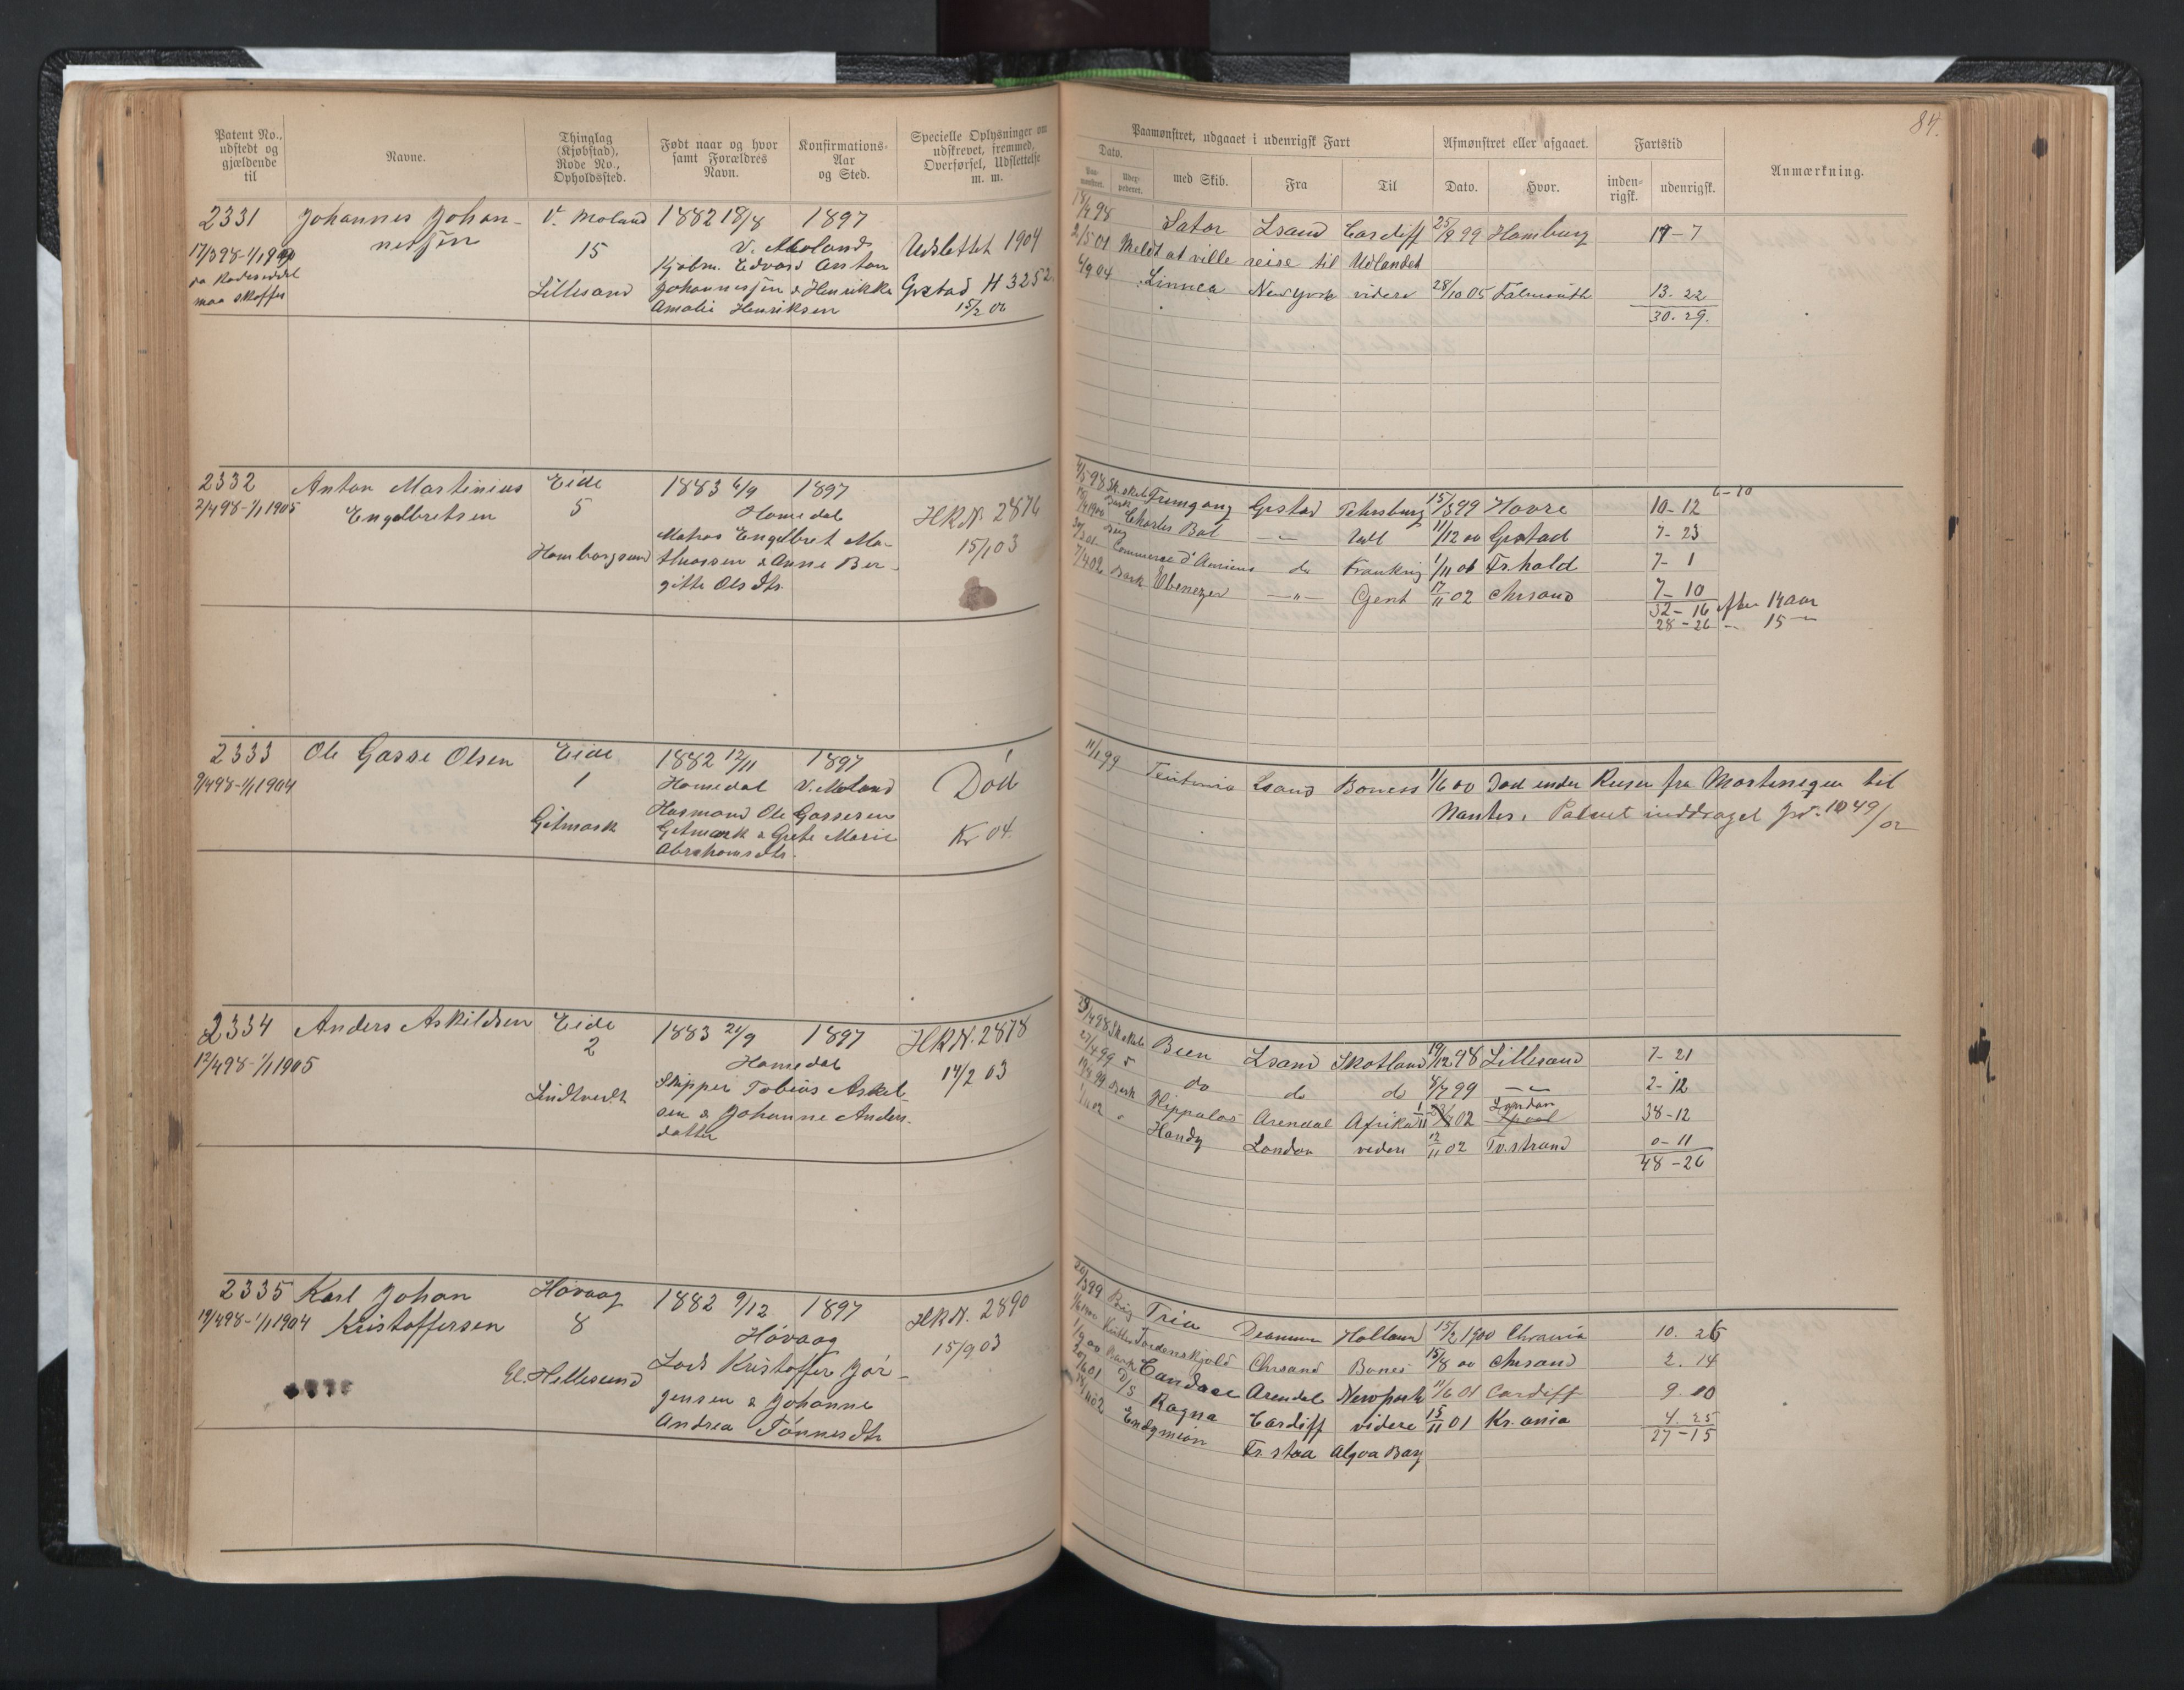 84.
Patent No., udstedt og gjældende til
Navne.
Thinglag (Kjøbstad), Rode No., Opholdssted.
Født naar og hvor samt Forældres Navn.
Konfirmations-Aar og Sted.
Specielle Oplysninger om udskrevet, fremmed, Overførsel, Udslettelse m. m.
Paamønstret, udgaaet i udenrigsk Fart
Dato.
med Skib.
Fra
Til
Afmønstret eller afgaaet.
Dato.
Hvor.
Fartstid
inden-rigsk.
udenrigsk.
Anmærkning.
2331 Johannes Johan- V. Moland 1882 18/8 1897
nessen 15 V. Moland Udslettet 1904
Kjøbm. Edvard Anton
Lillesand Johannessen & Henrikke Grstad H 3252
Amalie Henriksen 15/2 06
Sator Lsand Cardiff 25/9 99 Hamburg 17-7
2/5 01 Meldt at ville reise til Udlandet
Linnea New York videre 28/10 05 Falmouth 13. 22
30. 29.
2332 Anton Martinius Eide 1883 6/9 1897
2/4 98-1/1 1905 Engelbretsen 5 Homedal HRN. 2876
Matros Engelbret Ma- 15/1 03
Homborgsund thiassen & Anne Ber-
gitte Olsdtr.
Fremgang Grstad Petersburg 15/3 99 Havre 10-12 6-10
Bark Charles Bal 11/12 00 Grstad 7-23
Commerce d'Amiens do Frankrig Frhald 7-1
7/4 02 Bark Ebenezer -"- Gent 17/11 02 Chrsand 7-10
32-16 efter 14 aar
28-26 - 15 -
2333 Ole Gasse Olsen Eide 1882 12/11 1897
9/4 98-1/1 1904 1 Homedal V. Moland Død
Husmand Ole Gassesen
Gitmark Gitmark & Grete Marie Kr 04.
Abrahamsdtr.
11/1 99 Lsand Boness 1/6 00 Død under Reisen fra Martinique til
Nantes. Patent inddraget Jr. 1049/02
2334 Anders Askildsen Eide 1883 21/9 1897 HRN. 2878
12/4 98-1/1 1905 2 Homedal 14/2 03
Skipper Tobias Askel-
Lindtveit sen & Johanne Anders-
datter
Bien Lsand Skotland 19/12 98 Lillesand 7-21
27/4 99 do do do 99 2-12
Bark Hippalos Arendal Afrika 02 London 38-12
Handy London videre 12/11 02 Tv.strand 0-11
48-26
2335 Karl Johan Høvaag 1882 9/12 1897
19/4 98-1/1 1904 Kristoffersen 8 Høvaag HRN. 2890
Lods Kristoffer Jør- 15/9 03
Gl. Hellesund gensen & Johanne
Andrea Tønnesdtr
Brig Tria Drammen Holland 15/2 1900 Chrania 10. 26
Tordenskjold Chrsand Bones 15/8 00 Chrsand 2. 14
Bark Candace Arendal Newport 11/6 01 Cardiff 9. 10
D/S Ragna Cardiff videre 15/11 01 Kr.ania 4. 25
27-15
Endymion Fr.stad Algoa Bay